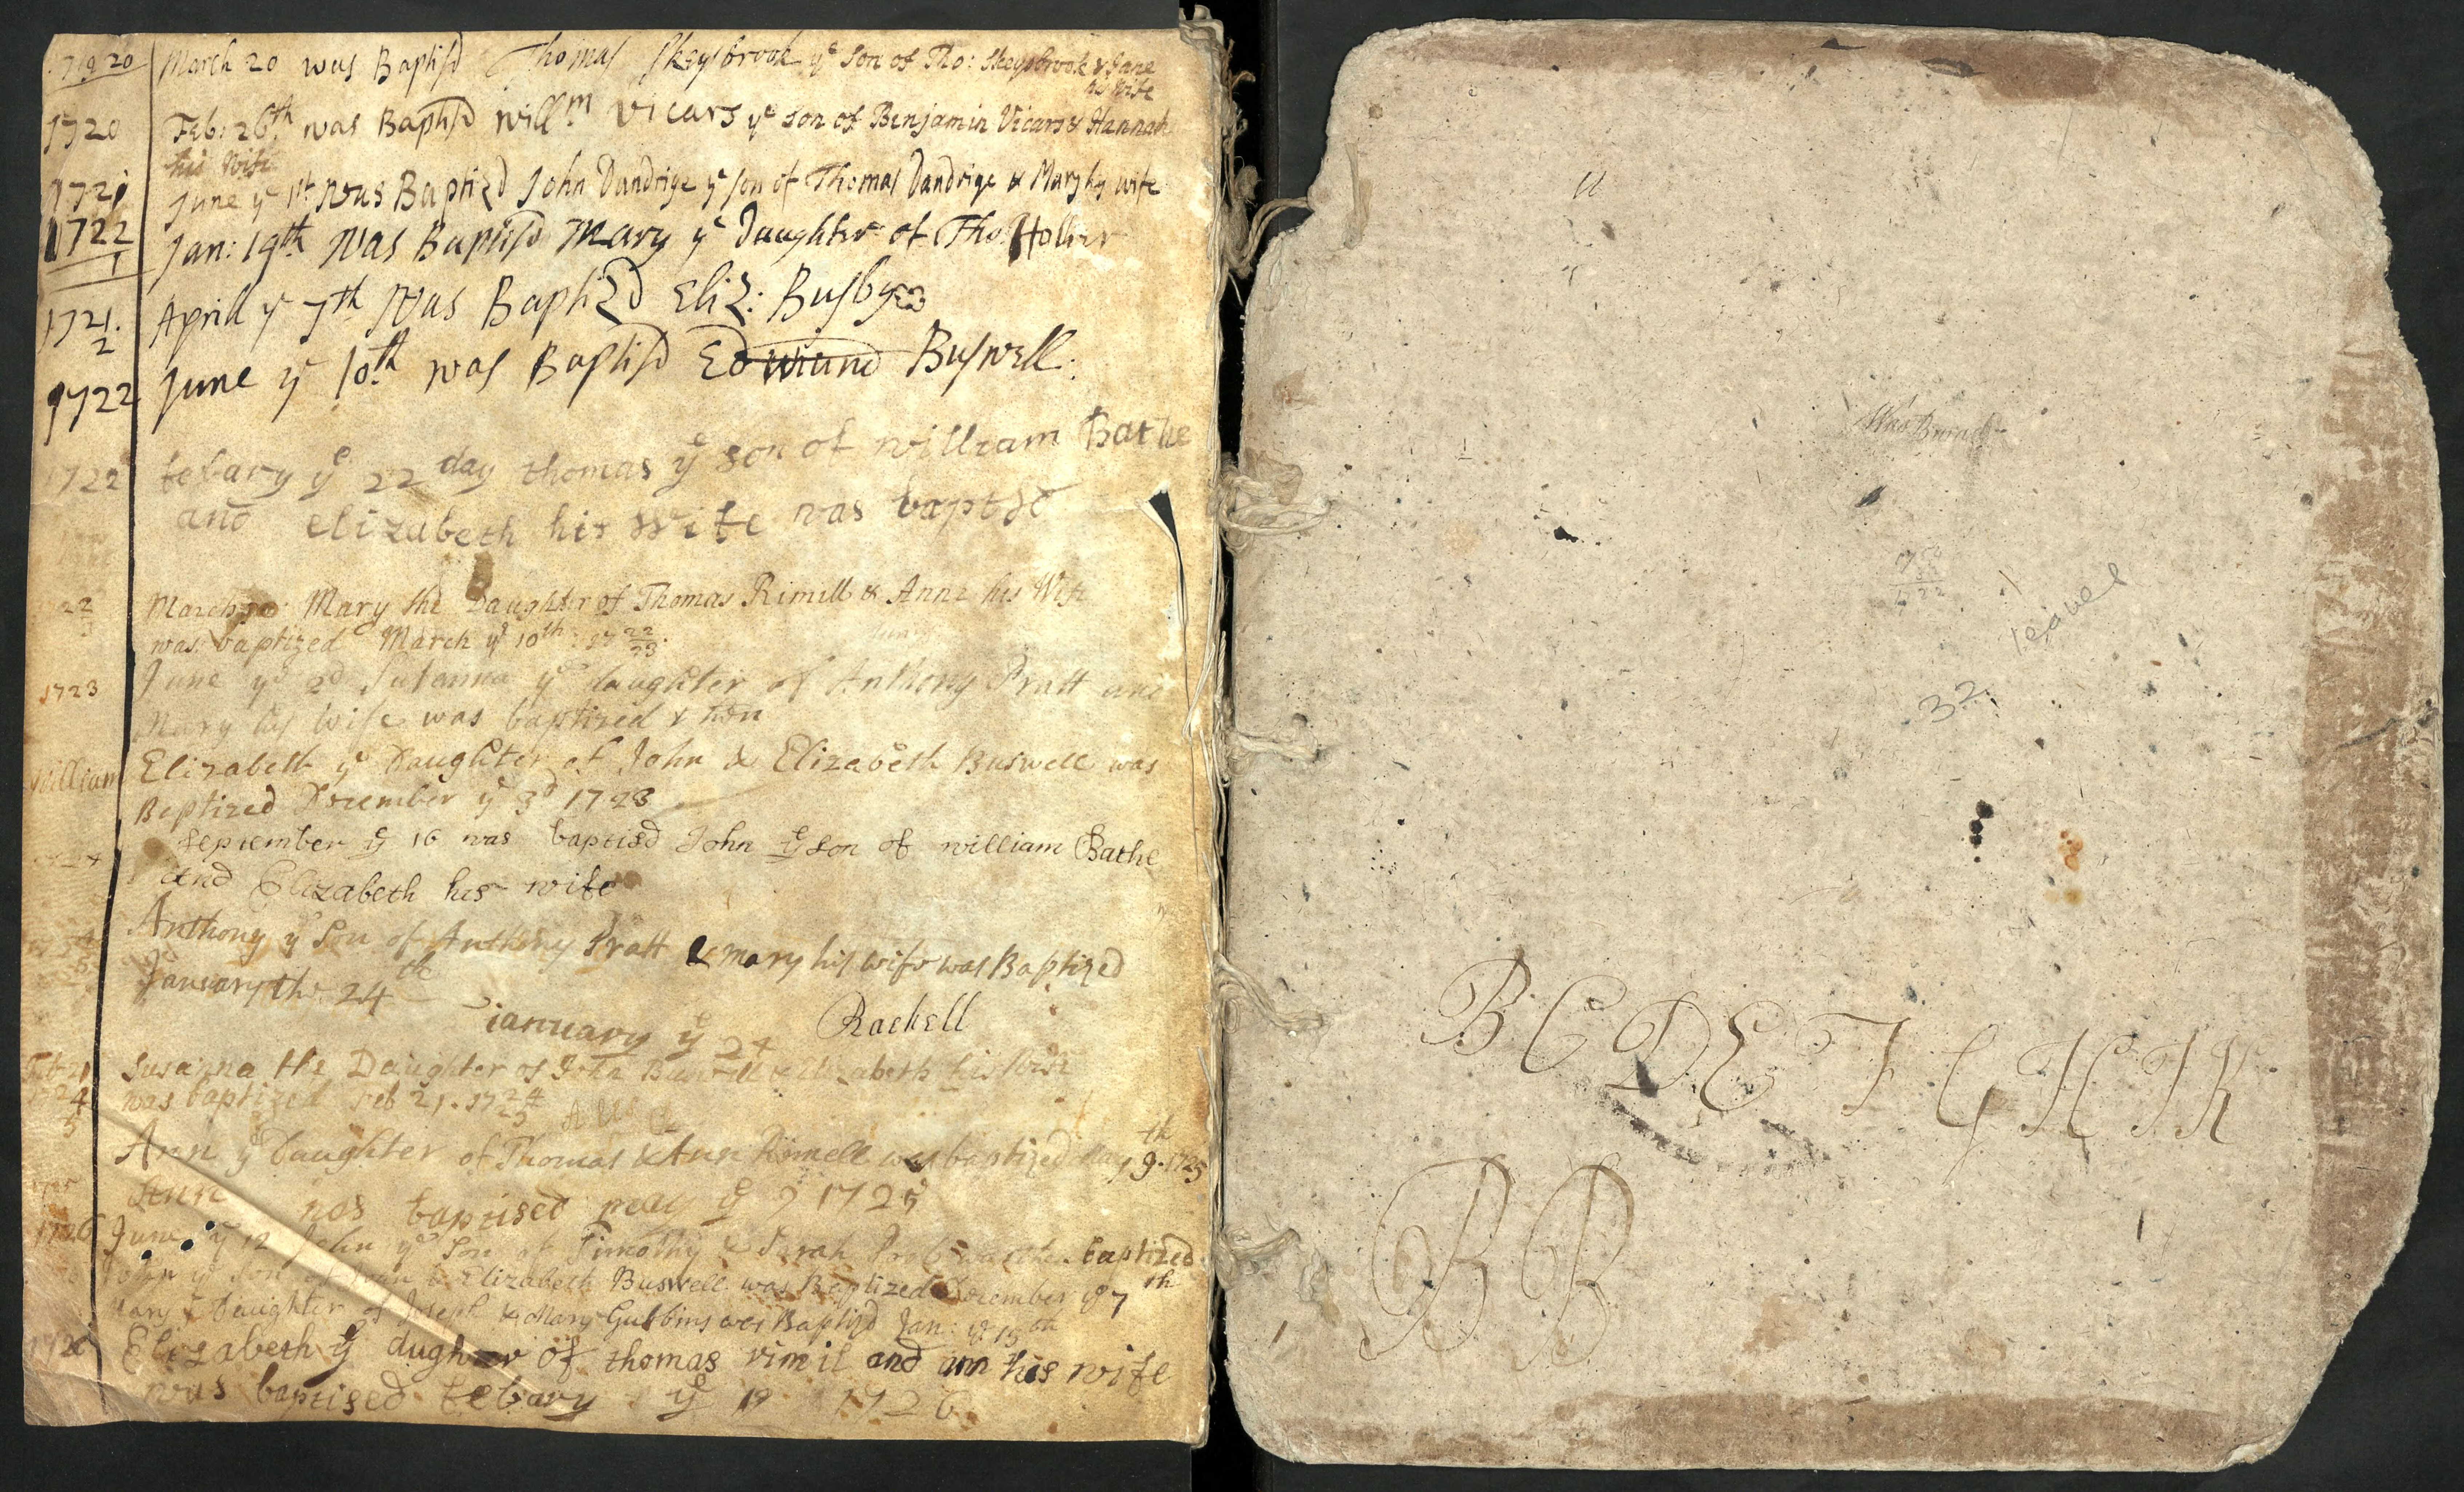 1719/20 March 20 was Baptisd Thomas Skeysbrook yͤ Son of Tho: Skeysbrook & Jane
his Wife
1720 Feb: 26th was Baptisd Willm Vicars yͤ son of Benjamin Vicars & Hannah
his Wife
1721 June yͤ 1st Was Baptizd John Dandrige yͤ son of Thomas Dandrige & Mary his wife
1722/1 Jan: 19th Was Baptisd Mary yͤ Daughter of Tho: Hollier
1721/2 Aprill yͤ 7th Was Baptizd Eliz: Busby
1722 June yͤ 10th was Baptisd Edmund Buswell.
1722 febary yͤ 22 day thomas yͤ son of william Bathe
and elizabeth his wife was baptsd
22/3 March 10: Mary the Daughter of Thomas Rimill & Anne his Wife
was baptized March yͤ 10th 1722/23.
1723 June yͤ 2d Susanna yͤ daughter of Anthony Pratt and
Mary his Wife was baptized
William Elizabeth yͤ Daughter of John & Elizabeth Buswell was
Baptized December yͤ 3d 1723
september yͤ 16 was baptisd John yͤ son of william Bathe
and Elizabeth his wife
Anthony yͤ Son of Anthony Pratt & mary his wife was Baptized
January the 24th
ianuary yͤ 24 Rachell
Feb 21 Susanna the Daughter of John Buswell & Elizabeth his Wife
24/5 was baptized Feb 21. 1724/25
Ann yͤ Daughter of Thomas & Ann Rimell was baptized May 9th. 1725
Ann was baptised may yͤ 9 1725
1726 June yͤ 12 John yͤ Son of Timothy & Sarah was then baptized
John yͤ Son of John & Elizabeth Buswell was Baptized December yͤ 7th
Mary yͤ Daughter of Joseph & Mary Gubbins was Baptisd Jan: yͤ 15th
1726 Elizabeth yͤ dughter of thomas rimil and ann his wife
was baptised febary yͤ 19 1726
Was Buried
32 leaves
B C D E F G H I K
B B